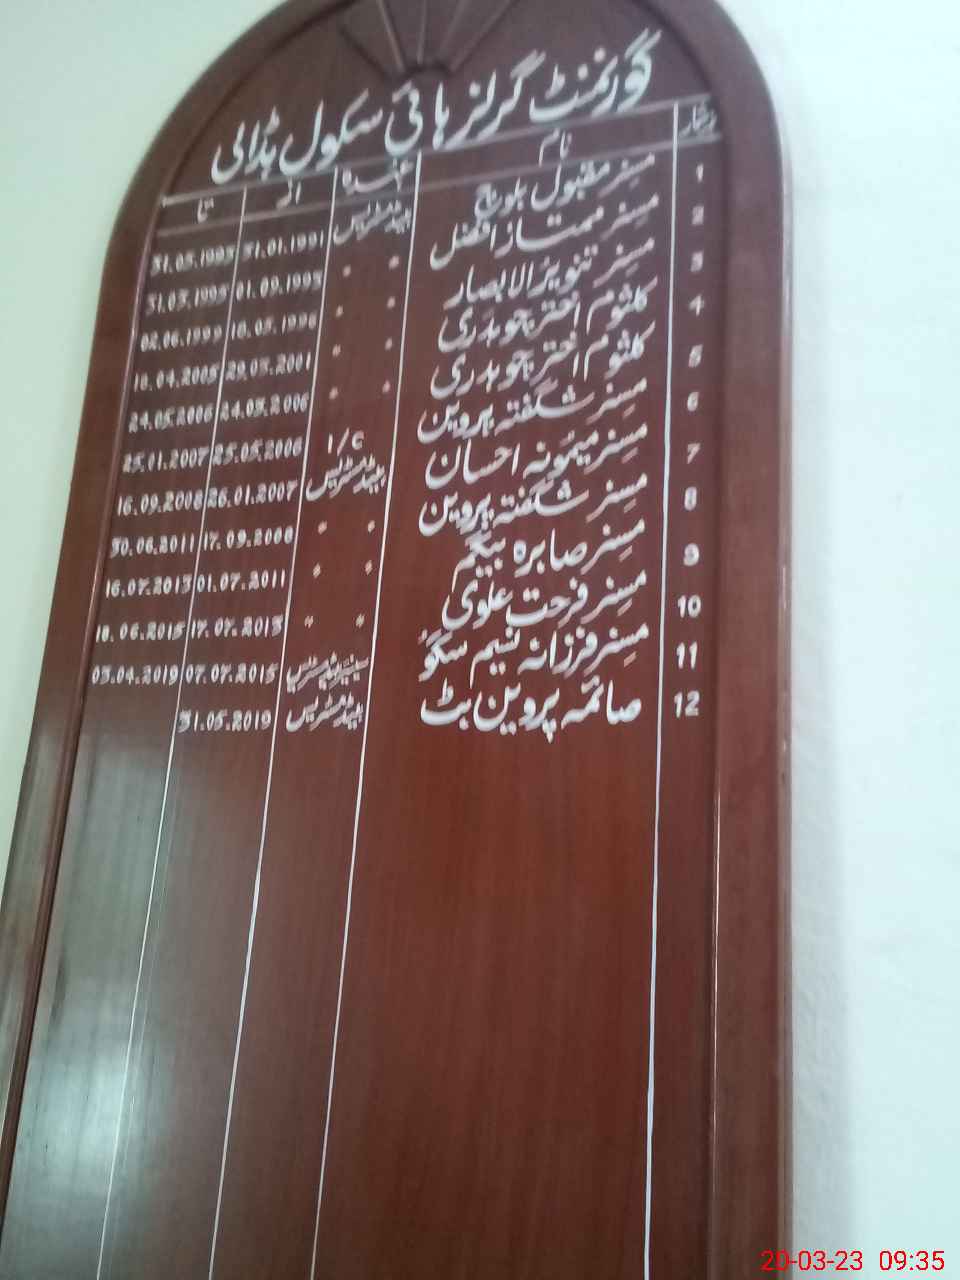 گورنمنٹ گرلز ہائی سکول ہڈالی
نام عہدہ از تا
1 مسز مقبول بلوچ ہیڈمسٹریس 31.01.1991 31.05.1993
2 مسز ممتاز افضل " " 01.09.1993 31.03.1995
3 مسز تنویرالابصار " " 02.06.1999
4 کلثوم اختر چوہدری " " 29.03.2001 18.04.2005
5 کلثوم اختر چوہدری " " 24.03.2006 24.05.2006
6 مسز شگفتہ پروین I/C 25.05.2006 25.01.2007
7 مسز میمونہ احسان ہیڈمسٹریس 26.01.2007 16.09.2008
8 مسز شگفتہ پروین " " 17.09.2008 30.06.2011
9 مسز صابرہ بیگم " " 01.07.2011 16.07.2013
10 مسز فرحت علوی " " 17.07.2013 18.06.2015
11 مسز فرزانہ نسیم سگو 07.07.2015 03.04.2019
12 صائمہ پروین بٹ ہیڈمسٹریس 31.05.2019
20-03-23 09:35